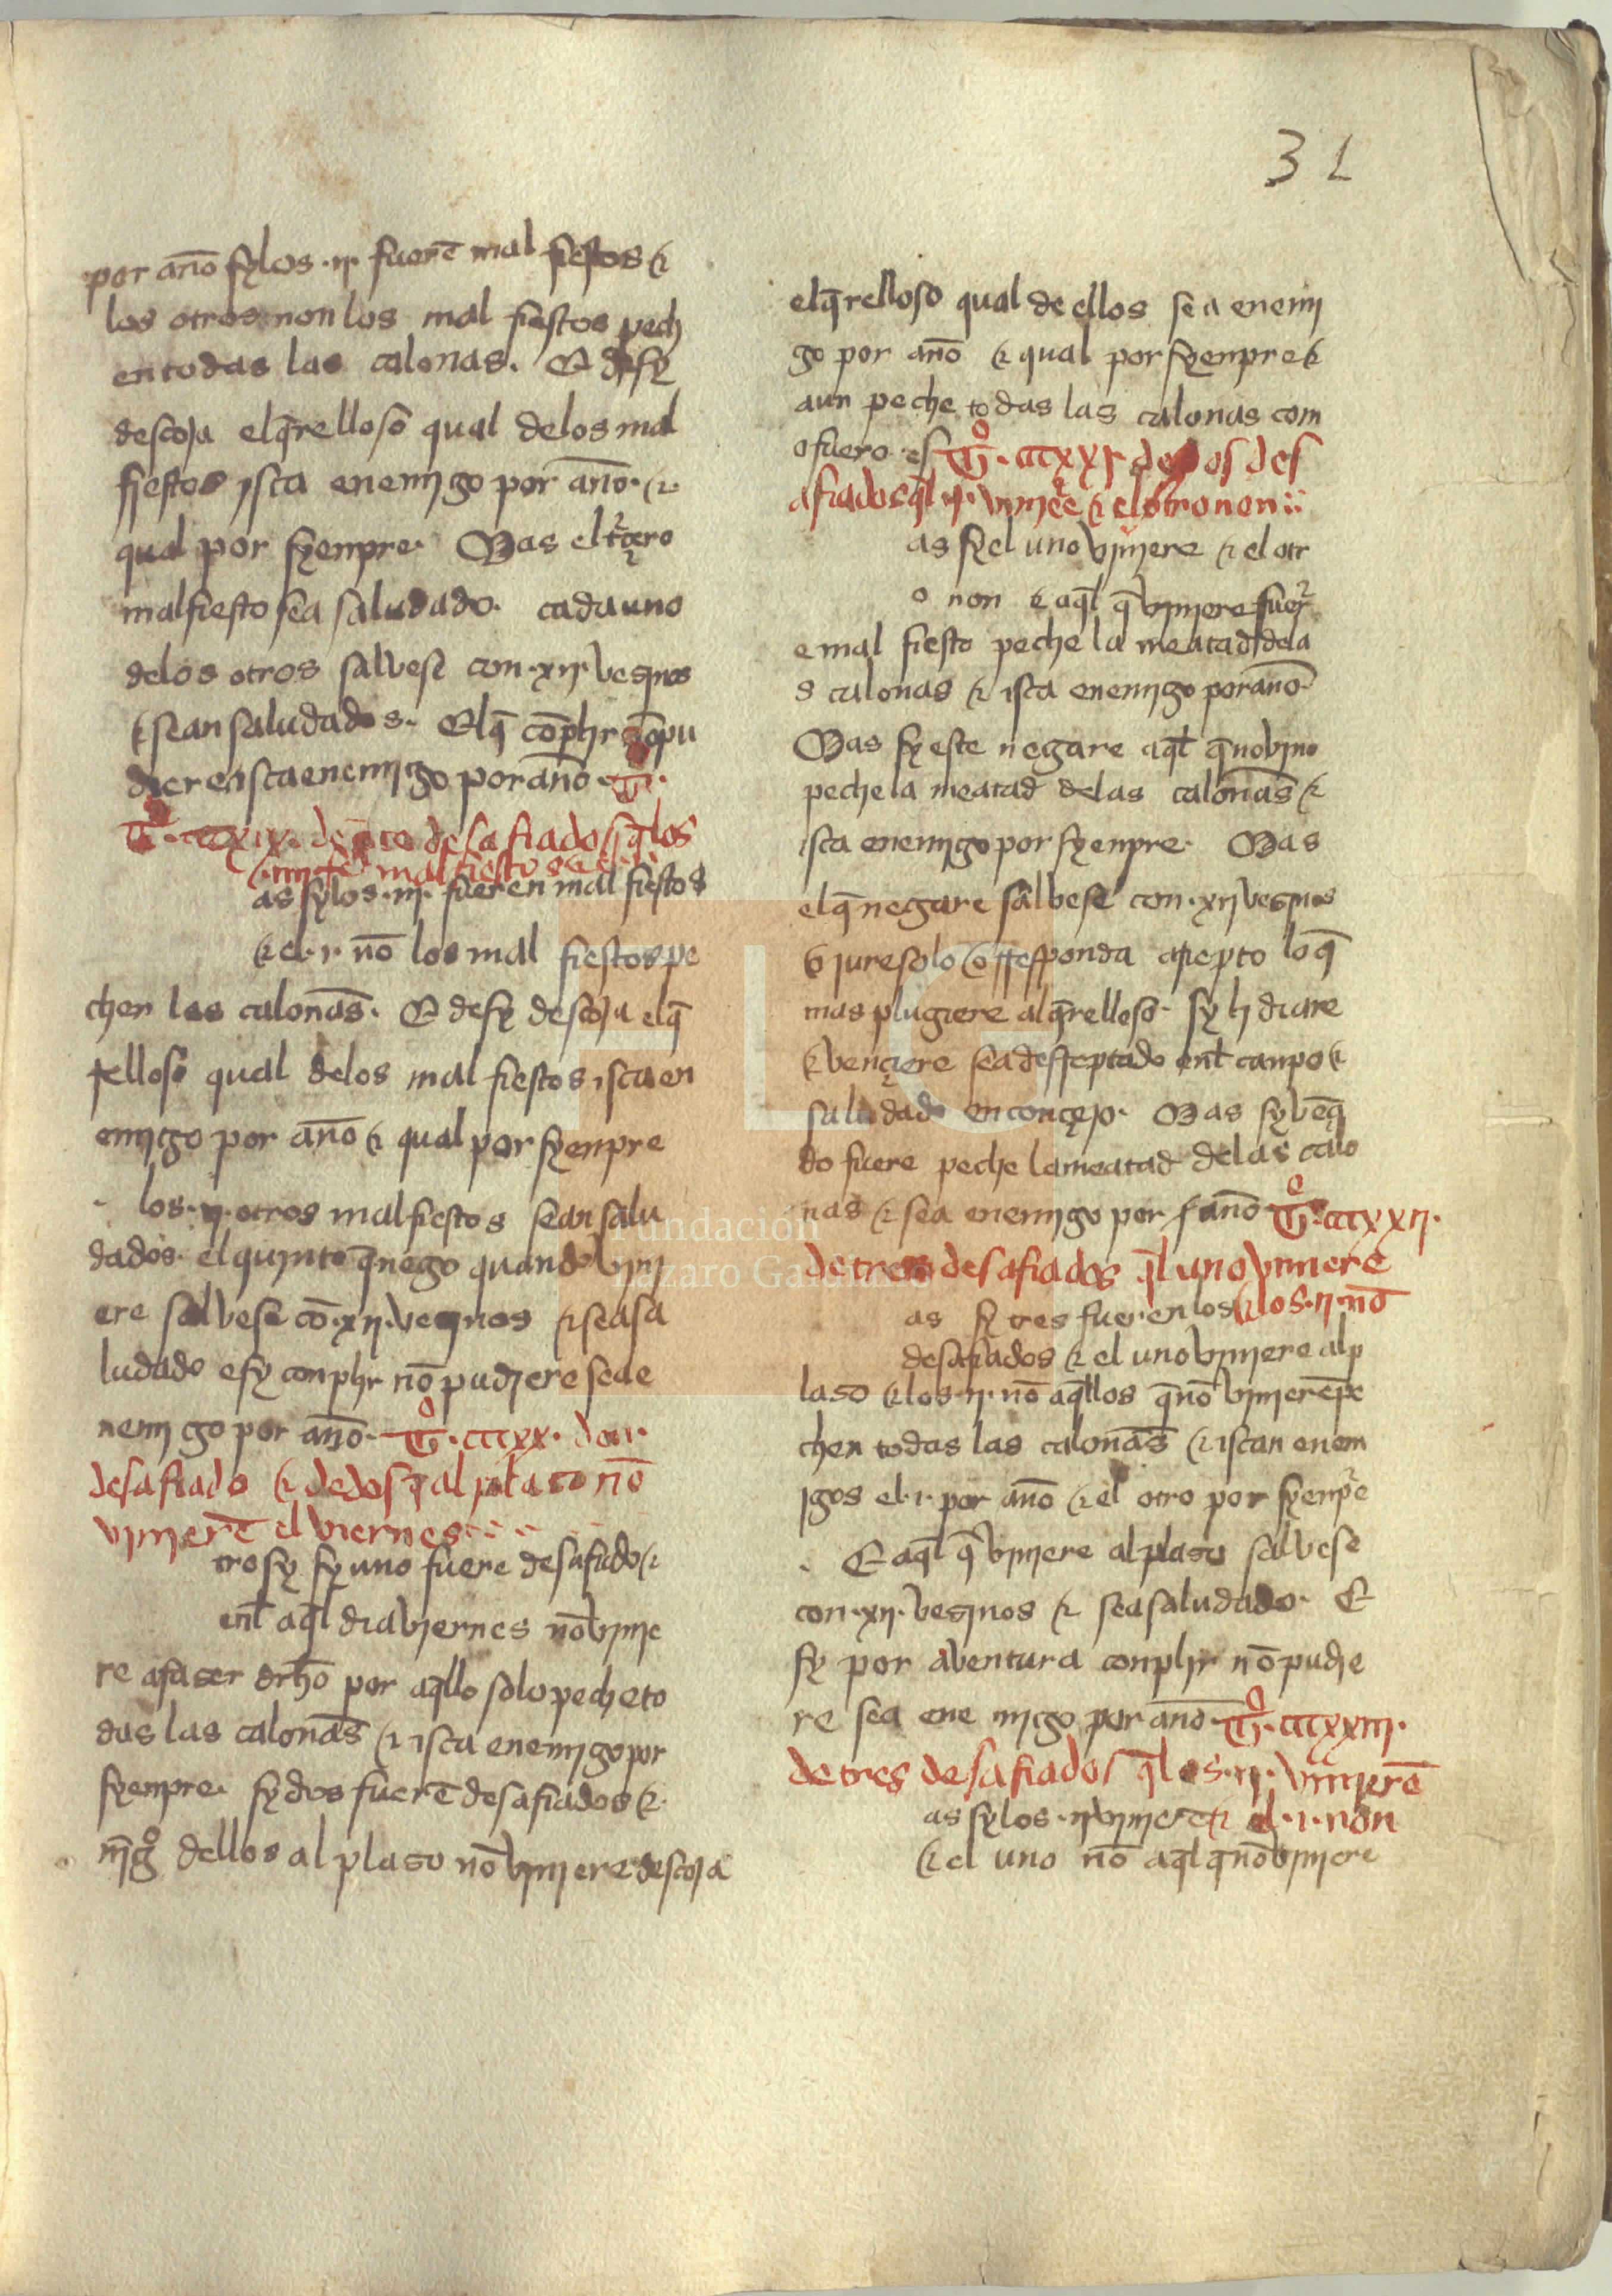 31
por año sy los .iij. fuerẽ mal fiestos &
los otros non los mal fiestos pech
en todas las calonas. Et desy
descoja el q̃relloso qual de los mal
fiestos ysca enemigo por año. &
qual por syenpre. Mas el terçero
mal fiesto sea saludado. cada uno
de los otros salvese con .xij. vesinos
& sean saludados. El q̃ cõplir nõ pu
diere isca enemigo por año. T̊.
T̊. cccxix. de desafiados q̃ los
.iiij. mal fiestos
as sy los .iij. fueren mal fiestos
& el .i. nõ los mal fiestos pe
chen las calonas. Et desy descoja el q̃
relloso qual de los mal fiestos isca en
emigo por año & qual por syenpre
los .ij. otros mal fiestos sean salu
dados. el quinto q̃ nego quando vini
ere salvese cõ .xij. vesinos & sea sa
ludado e sy conplir nõ pudiere sea e
nemigo por año. T̊. cccxx. de .i.
desafiado & de dos q̃ al plaso nõ
vinierẽ el viernes
trosy sy uno fuere desafiado &
enl̃ aq̃l dia viernes nõ vinie
re a faser drh̃o por aq̃llo solo peche to
das las calonas & isca enemigo por
syenpre. sy dos fuerẽ desafiados &
nĩg̊ dellos al plaso nõ viniere descoja
el q̃relloso qual de ellos sea enemi
go por año & qual por syenpre &
aun peche todas las calonas com
o fuero es T̊. cccxxj. de dos des
afiados q̃l .i. viniere & el otro non
as sy el uno viniere & el otr
o non & aq̃l q̃ viniere fuer
e mal fiesto peche la meatad de la
s calonas & isca enemigo por año.
Mas sy este negare aq̃l q̃ no vino
peche la meatad de las calonas &
isca enemigo por syenpre. Mas
el q̃ negare salvese con .xij vesinos
o jure solo & rresponda a rriepto lo q̃
mas plugiere al q̃relloso. sy lidiare
& vençiere sea desrreptado enl̃ canpo &
saludado en conçejo. Mas sy vẽçi
do fuere peche la meatad de las calo
nas & sea enemigo por año T̊. cccxxij.
de tres desafiados q̃l uno viniere
& los .ij. nõ
as sy tres fueren los
desafiados & el uno viniere al p
laso & los .ij. nõ aq̃llos q̃ nõ vinierẽ pe
chen todas las calonas & iscan enem
igos el .i. por año & el otro por syenpre
Et aq̃l q̃ viniere al plaso salvese
con .xij. vesinos & sea saludado. E
sy por aventura conplir nõ pudie
re sea ene migo por año T̊. cccxxiij.
de tres desafiados q̃ los .ij. vinierẽ
& el .i. non
as sy los .ij vinierẽ
& el uno nõ aq̃l q̃ nõ viniere
Fundación
Lázaro Galdiano